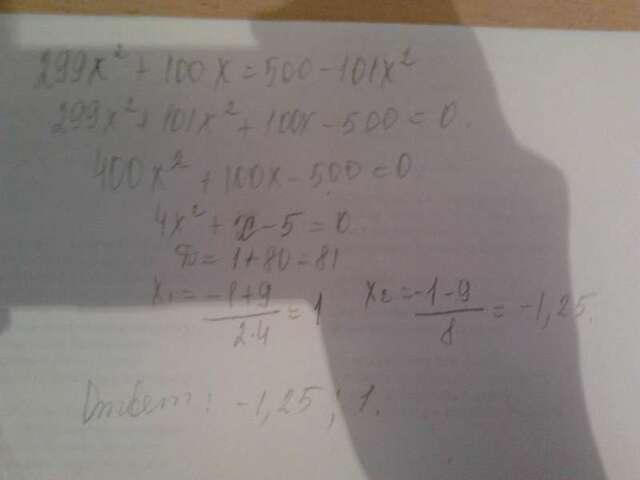 299x² + 100x = 500 - 101x²
299x² + 101x² + 100x - 500 = 0.
400x² + 100x - 500 = 0
4x² + x - 5 = 0
D = 1 + 80 = 81
x₁ = (-1+9)/(2·4) = 1 x₂ = (-1-9)/8 = -1,25.
Ответ: -1,25 ; 1.